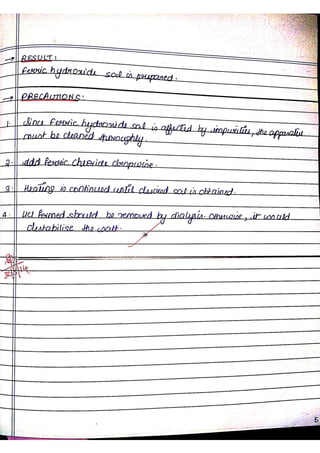 → RESULT:
Ferric hydroxide sol is prepared.
→ PRECAUTIONS:
1. Since Ferric hydroxide sol is affected by impurities, the apparatus
must be cleaned thoroughly.
2. Add Ferric Chloride dropwise.
3. Heating is continued until desired sol is obtained.
4. HCl formed should be removed by dialysis. Otherwise, it would
destabilise the
5